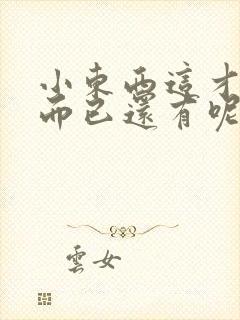 小東西這才
而已還有呢
雲女